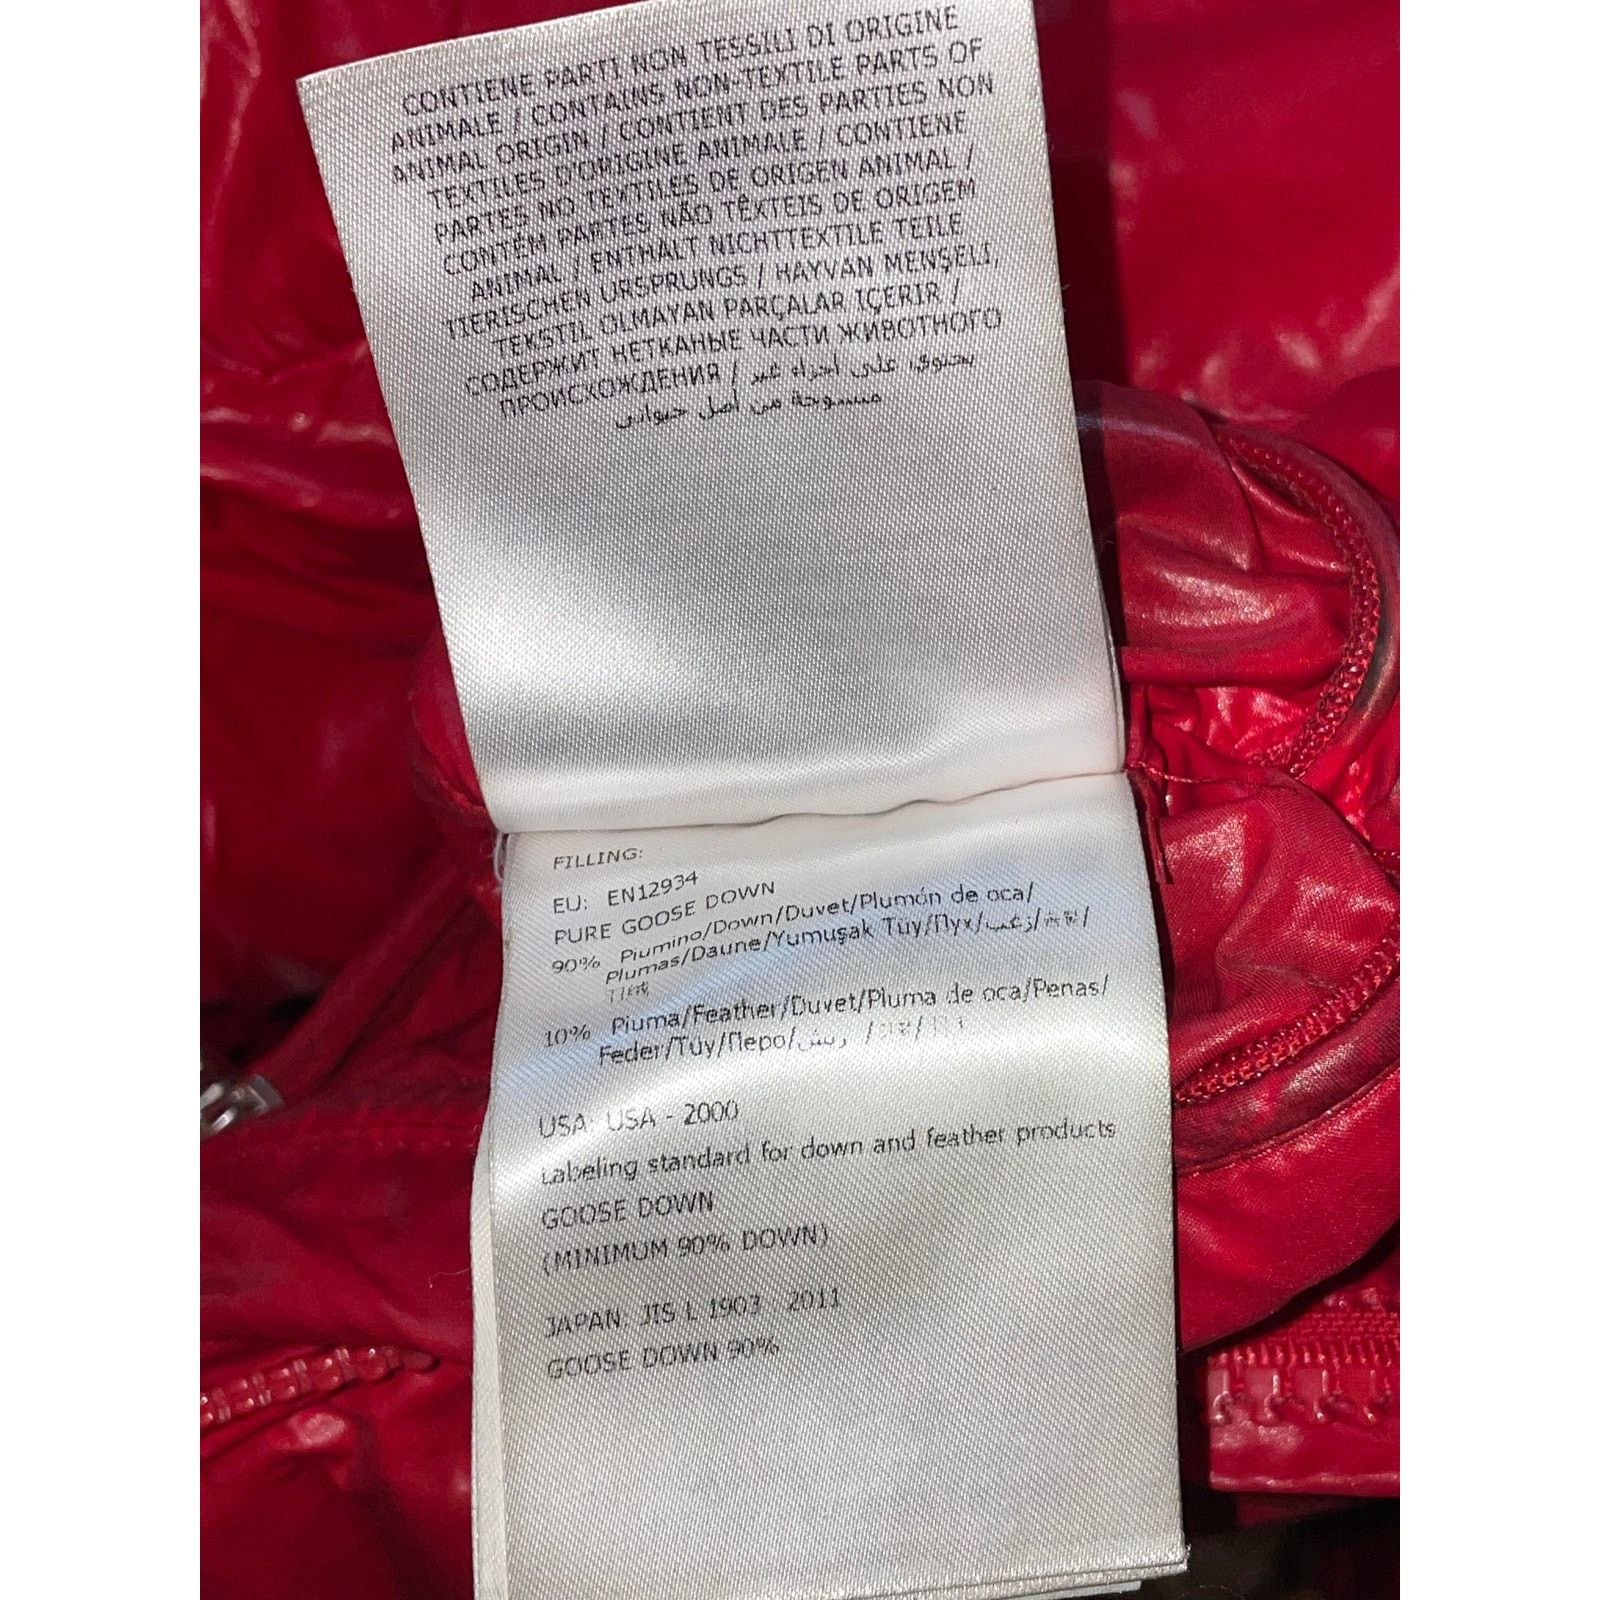 CONTIENE PARTI NON TESSILI DI ORIGINE
ANIMALE / CONTAINS NON-TEXTILE PARTS OF
ANIMAL ORIGIN / CONTIENT DES PARTIES NON
TEXTILES D'ORIGINE ANIMALE / CONTIENE
PARTES NO TEXTILES DE ORIGEN ANIMAL /
CONTÉM PARTES NÃO TÊXTEIS DE ORIGEM
ANIMAL / ENTHALT NICHTTEXTILE TEILE
TIERISCHEN URSPRUNGS / HAYVAN MENŞELI,
TEKSTIL OLMAYAN PARÇALAR IÇERIR /
СОДЕРЖИТ НЕТКАНЫЕ ЧАСТИ ЖИВОТНОГО
ПРОИСХОЖДЕНИЯ / يحتوي على أجزاء غير
منسوجة من أصل حيواني
FILLING:
EU: EN12934
PURE GOOSE DOWN
90% Piumino/Down/Duvet/Plumón de oca/
Plumas/Daune/Yumuşak Tüy/Пух/زغب/
10% Piuma/Feather/Duvet/Pluma de oca/Penas/
Feder/Tüy/Перо/ريش/
USA: USA - 2000
Labeling standard for down and feather products
GOOSE DOWN
(MINIMUM 90% DOWN)
JAPAN: JIS L 1903 : 2011
GOOSE DOWN 90%